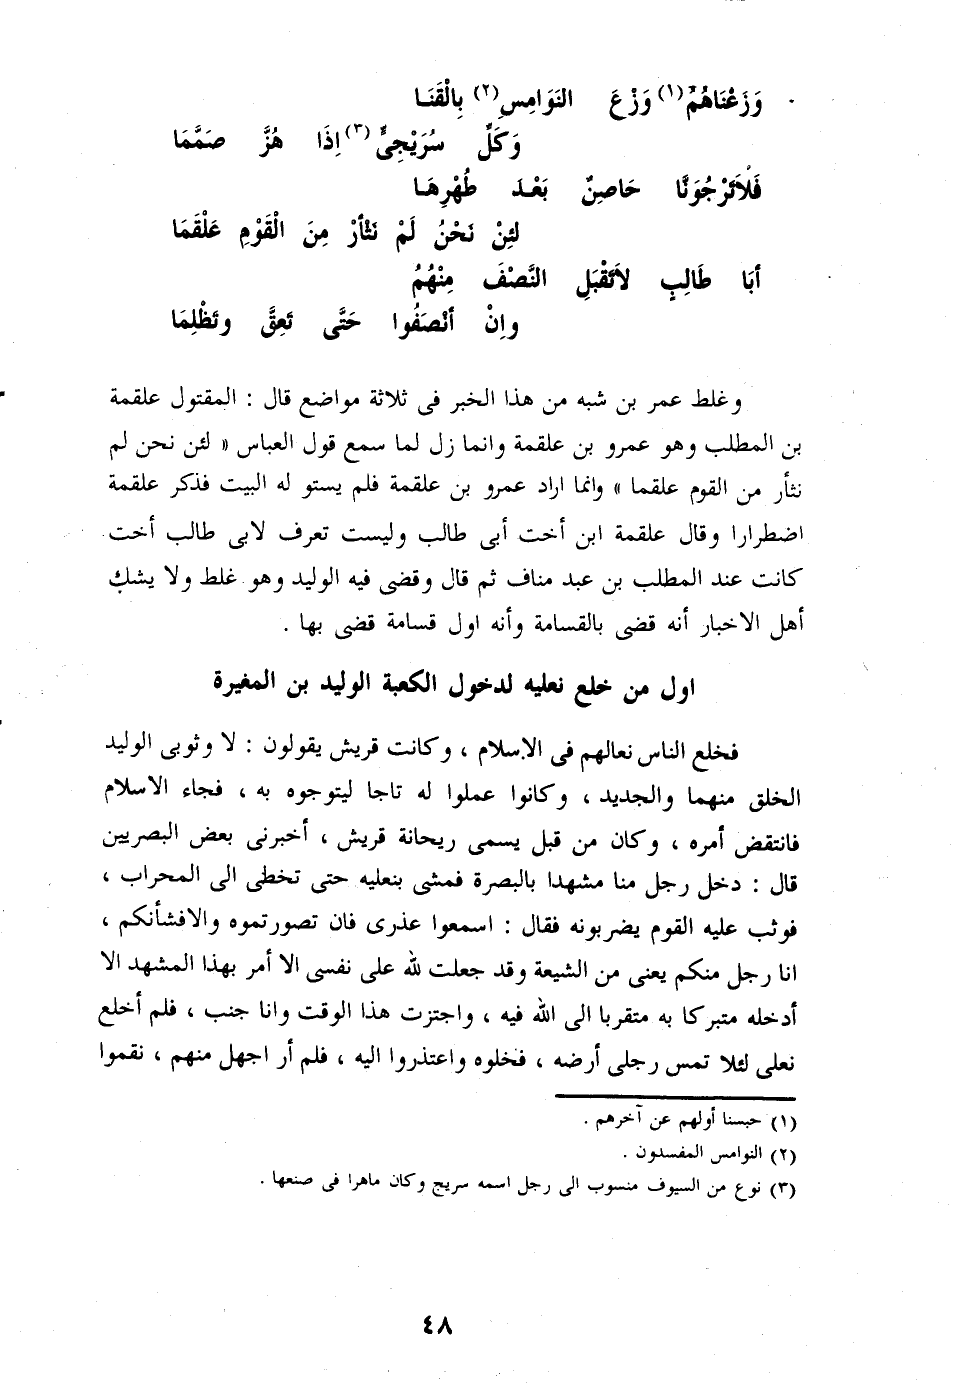 وَزَعْنَاهُمْ (١) وَزْعَ النَوَامِسِ (٢) بِالْقَنَـا
وَكَلِّ سُرَيْجِيٍّ (٣) اِذَا هُزَّ صَمَّمَا
فَلاَتَرْجُوَنَّا حَاصِنٌ بَعْـدَ طُهْرِهَـا
لئِنْ نَحْنُ لَمْ نَثْأَرْ مِنَ الْقَوْمِ عَلْقَمَا
أبَا طَالِبٍ لاَتَقْبَلِ النَّصْفَ مِنْهُمُ
وإنْ أنْصَفُوا حَتَّى تَعِقَّ وتَظْلِمَا
وغلط عمر بن شبه من هذا الخبر فى ثلاثة مواضع قال : المقتول علقمة
بن المطلب وهو عمرو بن علقمة وانما زل لما سمع قول العباس « لئن نحن لم
نثأر من القوم علقما » وانما اراد عمرو بن علقمة فلم يستو له البيت فذكر علقمة
اضطرارا وقال علقمة ابن أخت أبى طالب وليست تعرف لابى طالب أخت
كانت عند المطلب بن عبد مناف ثم قال وقضى فيه الوليد وهو غلط ولا يشك
أهل الاخبار أنه قضى بالقسامة وأنه اول قسامة قضى بها .
اول من خلع نعليه لدخول الكعبة الوليد بن المغيرة
فخلع الناس نعالهم فى الاسلام ، وكانت قريش يقولون : لا وثوبى الوليد
الخلق منهما والجديد ، وكانوا عملوا له تاجا ليتوجوه به ، فجاء الاسلام
فانتقض أمره ، وكان من قبل يسمى ريحانة قريش ، أخبرنى بعض البصريين
قال : دخل رجل منا مشهدا بالبصرة فمشى بنعليه حتى تخطى الى المحراب ،
فوثب عليه القوم يضربونه فقال : اسمعوا عذرى فان تصورتموه والافشأنكم ،
انا رجل منكم يعنى من الشيعة وقد جعلت لله على نفسى الا أمر بهذا المشهد الا
أدخله متبركا به متقربا الى الله فيه ، واجتزت هذا الوقت وانا جنب ، فلم أخلع
نعلى لئلا تمس رجلى أرضه ، فخلوه واعتذروا اليه ، فلم أر اجهل منهم ، نقموا
(١) حبسنا أولهم عن آخرهم .
(٢) النوامس المفسدون .
(٣) نوع من السيوف منسوب الى رجل اسمه سريج وكان ماهرا فى صنعها .
٤٨